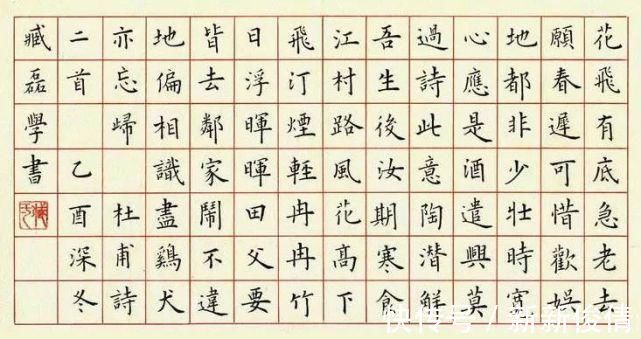 花飛有底急老去
願春遲可惜歡娛
地都非少壯時寬
心應是酒遣興莫
過詩此意陶潛解
吾生後汝期寒食
江村路風花高下
飛汀煙輕冉冉竹
日浮暉暉田父要
皆去鄰家鬧不違
地偏相識盡鷄犬
亦忘歸 杜甫詩
二首 乙酉深冬
臧磊學書
快传号 / 新新俊情